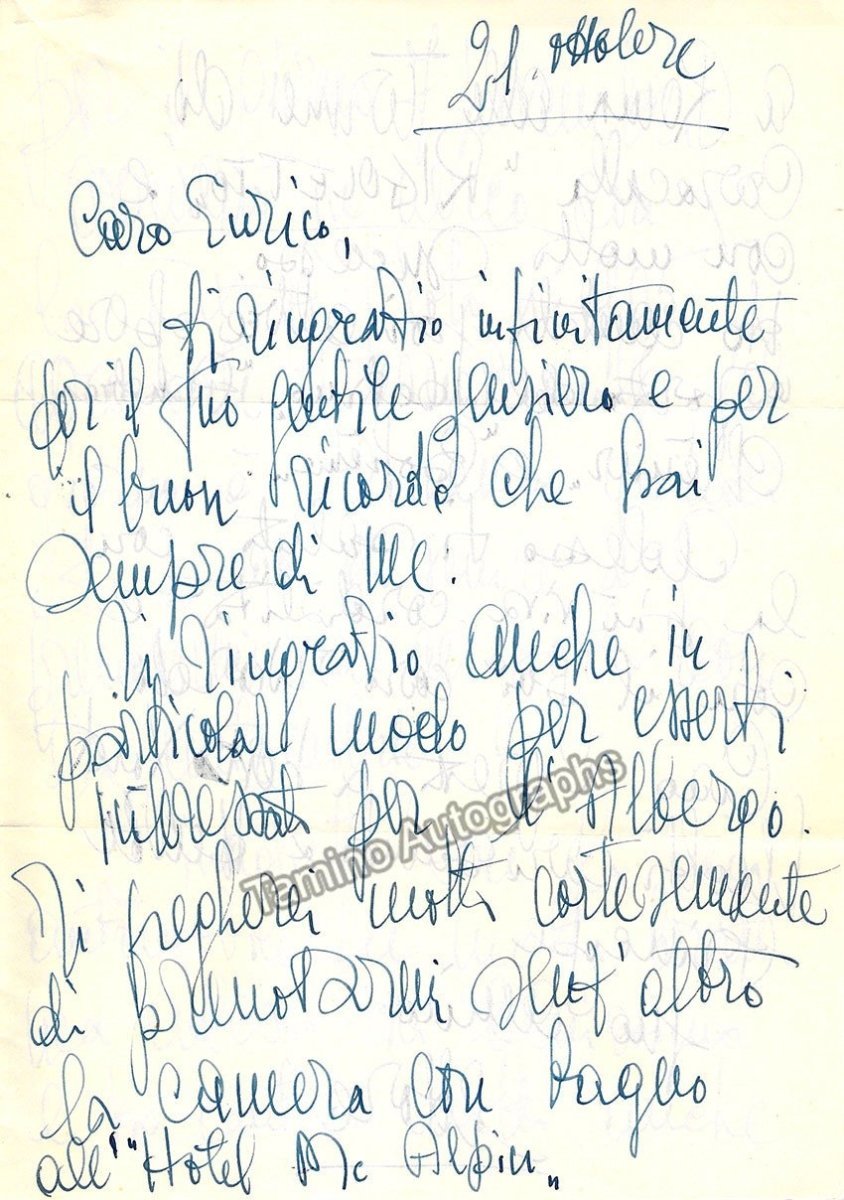 21. ottobre
Caro Enrico,
ti ringratio infinitamente
per il tuo gentile pensiero e per
il buon ricordo che hai
sempre di me.
Ti ringratio anche in
particolar modo per esserti
interessato per l'Albergo.
Tamino Autographs
Ti pregherei molto cortesemente
di prenotarmi senz'altro
la camera con bagno
all'"Hotel Mc Alpin„